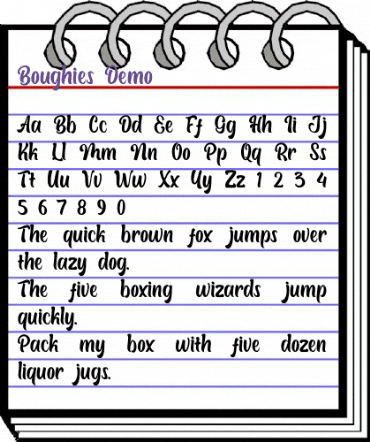 Boughies Demo
Aa Bb Cc Dd Ee Ff Gg Hh Ii Jj
Kk Ll Mm Nn Oo Pp Qq Rr Ss
Tt Uu Vv Ww Xx Yy Zz 1 2 3 4
5 6 7 8 9 0
The quick brown fox jumps over
the lazy dog.
The five boxing wizards jump
quickly.
Pack my box with five dozen
liquor jugs.